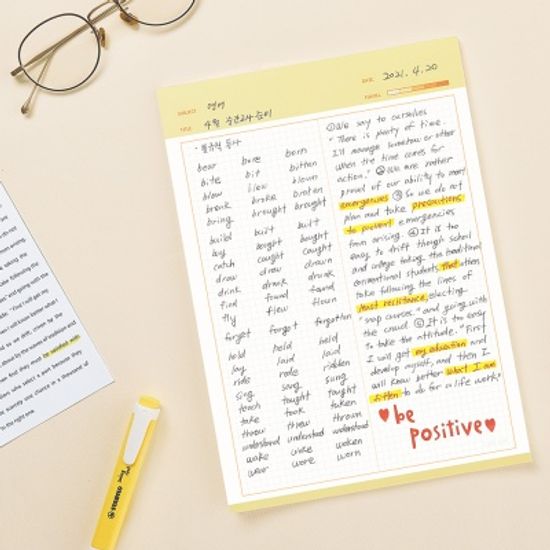 DATE 2021. 4. 20
SUBJECT 영어
TITLE 4월
• 불규칙 동사
bear bore born
bite bit bitten
blow blew blown
break broke broken
bring brought brought
build built built
buy bought bought
catch caught caught
draw drew drawn
drink drank drunk
find found found
fly flew flown
forget forgot forgotten
hold held held
lay laid laid
ride rode ridden
sing sang sung
teach taught taught
take took taken
throw threw thrown
understand understood understood
wake woke woken
wear wore worn
① We say to ourselves
"There is plenty of time.
I'll manage somehow or other
when the time comes for
action." ② We are rather
proud of our ability to meet
emergencies ③ So we do not
plan and take precautions
to prevent emergencies
from arising. ④ It is too
easy to drift through school
and college taking the traditional
conventional students that often
take following the lines of
least resistance, electing
"snap courses," and going with
the crowd ⑤ It is too easy
to take the attitude. "First
I will get my education and
develop myself, and then I
will know better what I am
fitten to do for a life work."
be
positive
STABILO